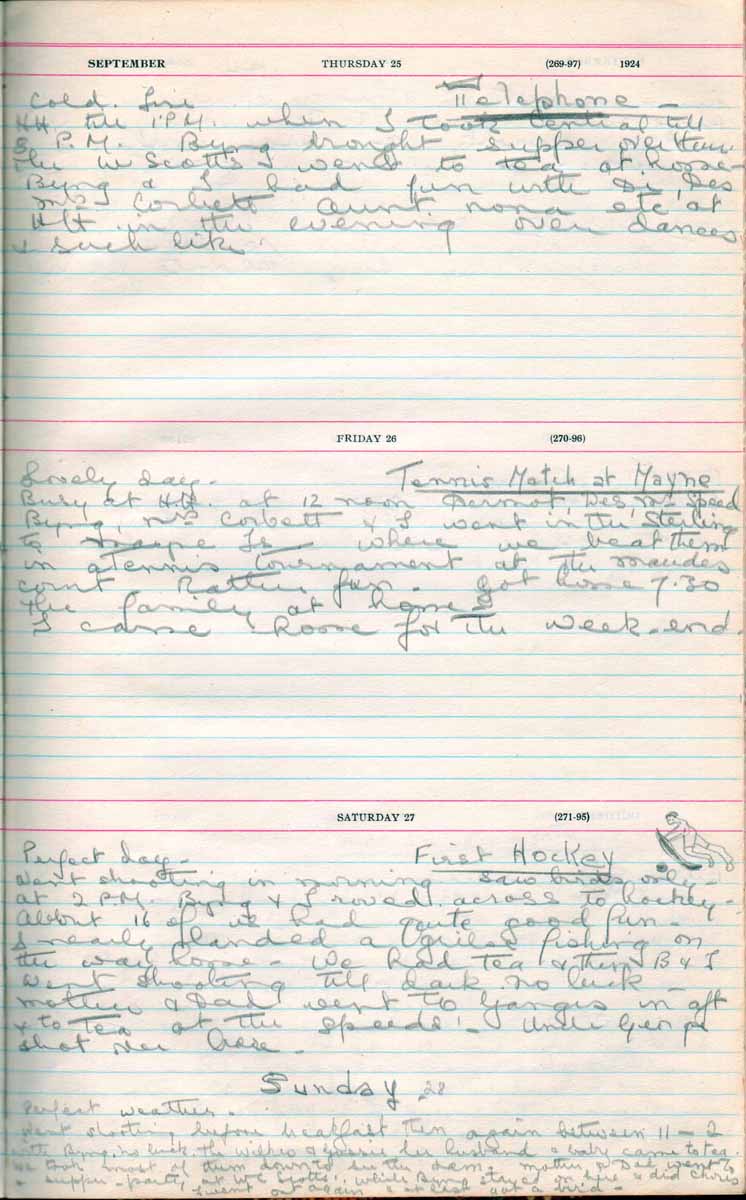 SEPTEMBER THURSDAY 25 (269-97) 1924
Cold. Fine Telephone -
HH till 1 P.M. when I took Central till
8 P.M. Byng brought supper over then.
The W Scotts & I went to tea at home-
Byng & I had fun with Di, Des
Mrs Corbett Aunt Nona etc at
HH in the evening over dances
& such like.
FRIDAY 26 (270-96)
Lovely day. Tennis Match at Mayne
Busy at HH. at 12 noon Dermot, Des, Mr Speed
Byng, Mrs Corbett & I went in the Sterling
to Mayne Is where we beat them
in a Tennis Tournament at the Maudes
court. Rather fun. got home 7.30
the family at home
I came home for the week-end.
SATURDAY 27 (271-95)
Perfect day - First Hockey
Went shooting in morning saw birds only -
at 2 P.M. Byng & I rowed across to hockey -
About 16 of us had quite good fun -
I nearly landed a Grilse fishing on
the way home - We had tea & then B & I
went shooting till dark no luck -
Mother & Dad went to Ganges in aft
& to tea at the Speeds! - Uncle George
shot over here -
Sunday 28
Perfect weather.
Went shooting before breakfast then again between 11 - 2
with Byng, no luck. The Wilkes & her husband & baby came to tea.
We took most of them down to see the dam - mother & Dad went to
a supper-party at W Scotts', while Byng stayed here & did chores
I went out again & at last got a bird -